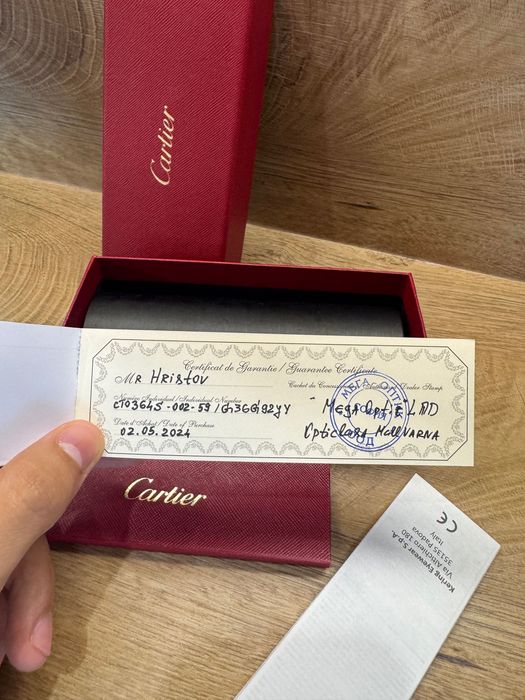 Cartier
Certificat de Garantie / Guarantee Certificate
Mr Hristov
Cachet du Dealer Stamp
Numéro Individuel / Individual Number
CT0364S-002-59 /
Date d'Achat / Date of Purchase
02.05.2024
МЕГА ОПТИК
LTD
Mall VARNA
Cartier
CE
Kering Eyewear S.p.A.
Via Altichiero 180
35135 Padova
Italy